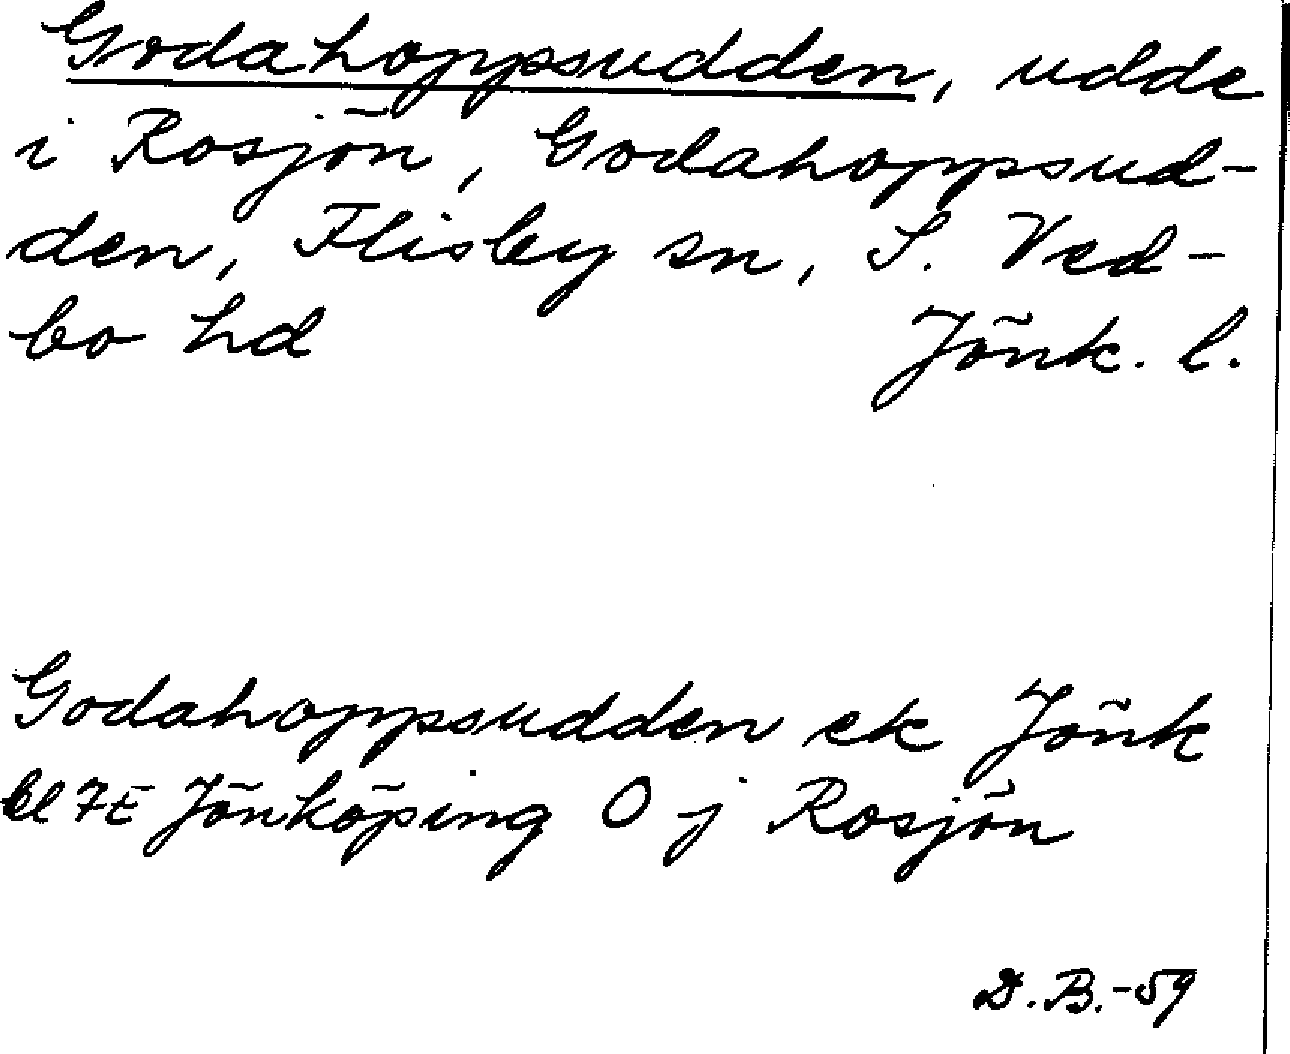 Godahoppsudden, udde
i Rosjön, Godahoppsud-
den, Flisby sn, S. Ved-
bo hd Jönk. l.
Godahoppsudden ek Jönk
bl 7E Jönköping O j Rosjön
D.B.-59